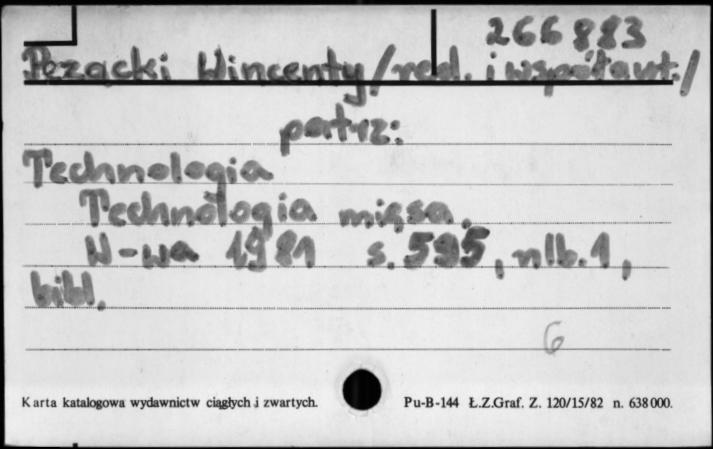 266883
Pezacki Wincenty /red. i współaut./
patrz:
Technologia
Technologia mięsa.
W-wa 1981 s. 595, nlb. 1,
bibl.
6
Karta katalogowa wydawnictw ciągłych i zwartych. Pu-B-144 Ł.Z.Graf. Z. 120/15/82 n. 638000.